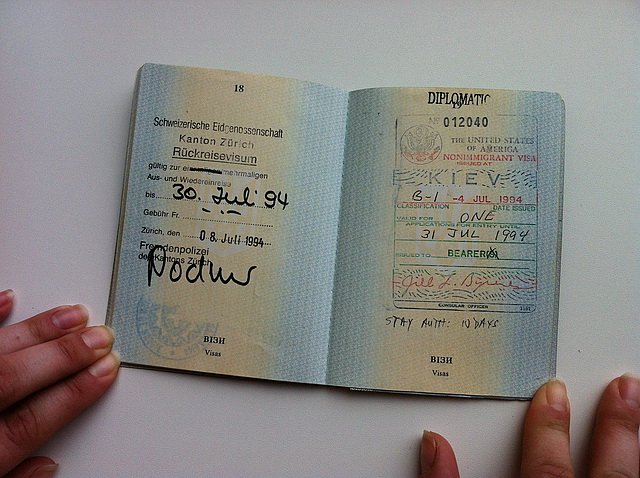 18
Schweizerische Eidgenossenschaft
Kanton Zürich
Rückreisevisum
gültig zur mehrmaligen
Aus- und Wiedereinreise
bis 30. Juli 94
Gebühr Fr.
Zürich, den 08. Juli 1994
Fremdenpolizei
des Kantons Zürich
ВІЗИ
Visas
DIPLOMATIC
19
Nº 012040
THE UNITED STATES
OF AMERICA
NONIMMIGRANT VISA
ISSUED AT
KIEV
B-1 -4 JUL 1994
CLASSIFICATION DATE ISSUED
VALID FOR ONE
APPLICATIONS FOR ENTRY UNTIL
31 JUL 1994
ISSUED TO BEARER(S)
Jill L. Byrne
CONSULAR OFFICER
STAY AUTH: 10 DAYS
ВІЗИ
Visas